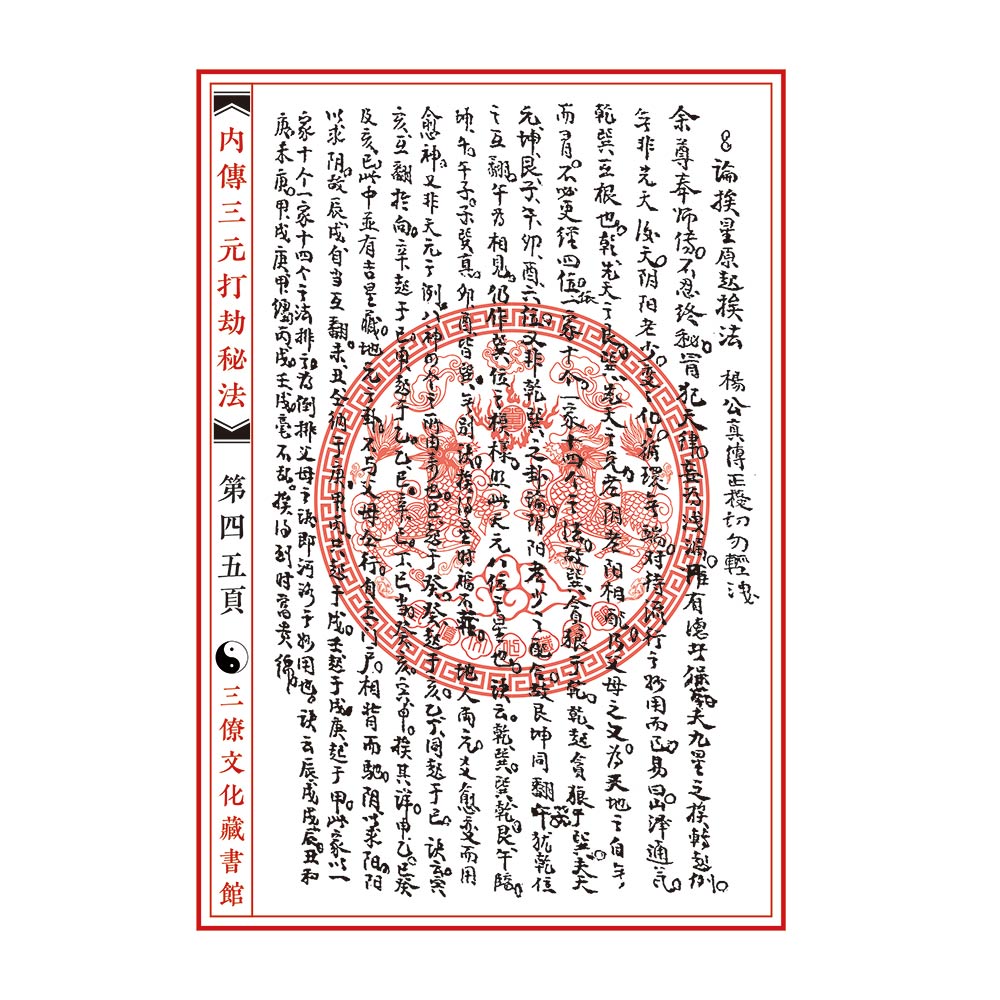 論挨星原起挨法 楊公真傳正授切勿輕洩
余尊奉師傳。不忍終秘。冐犯天律。妄為洩漏。唯有德者保。夫九星之挨轉起例。
無非先天後天。陰陽老少。變化。循環無端。對待流行之妙用而已。易曰。山澤通氣。
乾巽互根也。乾先天之艮。巽。先天之兌。老陰老陽相配。乃父母之又。為天地之自年,
而有。不必更經四位。一家十个一家十四个之法。故巽。貪狼于乾。乾起貪狼于巽。夫天
元。坤。艮。子。午。卯。酉。六位。又非乾巽之卦。論陰陽老少之配合。故艮坤同翻午。犹乾位
之互翻。午為相見。仍作巽位之模樣。照此天元八位之星也。訣云。乾巽。巽乾。艮午。臨
坤。午。午子。子巽真。卯酉皆留。無別法。挨得星時福不 地人兩元爻愈变而用
愈神。又非天元之例。八神四个之一兩由寿也。巳起于癸。癸起于亥。乙丁同起于巳。訣云。寅
亥。互翻於向。辛起于巳。甲起于乙。乙巳辛。巳。丁巳當癸亥。寅甲。挨其詳。甲乙。巳癸
及亥。巳。此中並有吉星藏。地元之卦。不与父母仝行。自立门户。相背而馳。陰以求陽。陽
以求陰。故辰戌自当互翻。未。丑仝納于庚。甲。丙起于戌。壬起于戌。庚起于甲。此家以一
家十个一家十四个之法排之。為倒排父母之訣。即河洛之妙用也。訣云。辰戌。戌辰。丑和
庚。未庚。甲戌庚甲繩。丙戌。壬戌毫不乱。挨得到时富贵綿。
内傳三元打劫秘法
第四五頁
三僚文化藏書館